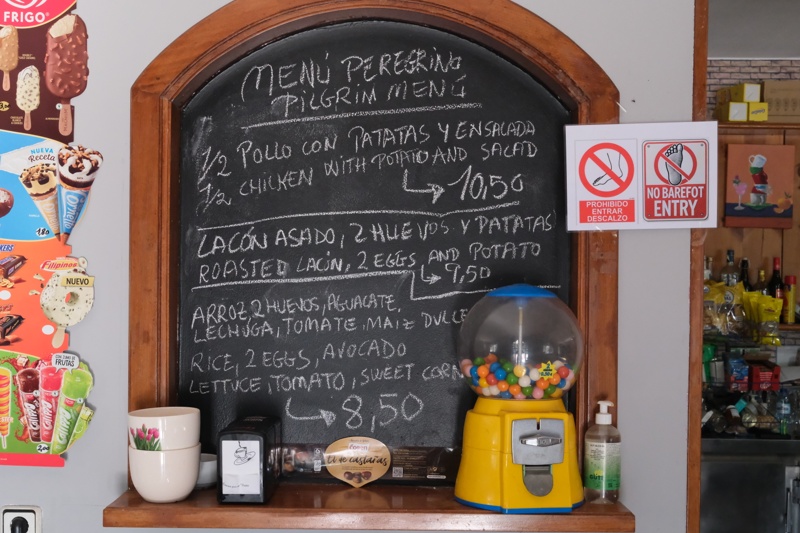 FRIGO
MENÚ PEREGRINO
PILGRIM MENÚ
1/2 POLLO CON PATATAS Y ENSALADA
1/2 CHICKEN WITH POTATO AND SALAD
10,50
LACÓN ASADO, 2 HUEVOS Y PATATAS
ROASTED LACÓN, 2 EGGS AND POTATO
9,50
ARROZ, 2 HUEVOS, AGUACATE,
LECHUGA, TOMATE, MAIZ DULCE
RICE, 2 EGGS, AVOCADO
LETTUCE, TOMATO, SWEET CORN
8,50
PROHIBIDO
ENTRAR
DESCALZO
NO BAREFOT
ENTRY
NUEVA
Receta
Filipinos
NUEVO
FRUTAS